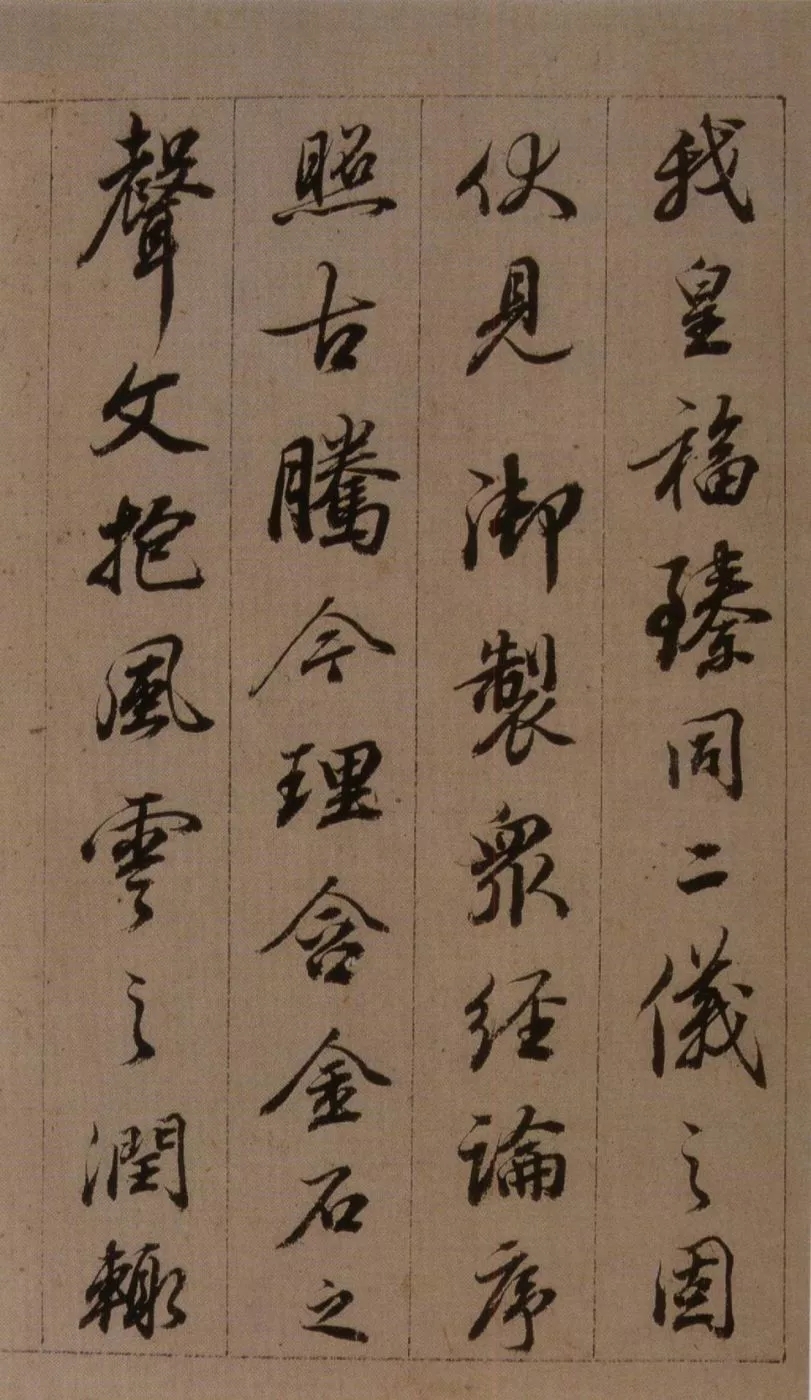 我皇福臻同二儀之固
伏見御製眾經論序
照古騰今理含金石之
聲文抱風雲之潤輙